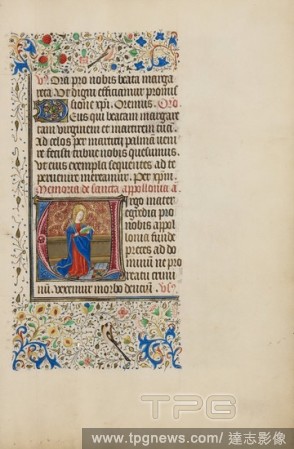 Ora pro nobis beata marga
reta Ut digni efficiamur promis
sione xpi. Oremus. Oro
Deus qui beatam margare
tam virginem et martirem tuā.
Ad celos per martirij palmā veni
re fecisti tribue nobis quesumus
ut eius exempla sequentes ad te
peruenire mereamur. Per xp̄m
Memoria de sancta appollonia a
Virgo mater
egregia pro
nobis appol
lonia funde
preces ad do
minū ne pro
reatu crimi
nū. vexemur morbo dencium. vs
TPG
www.tpgnews.com/達志影像